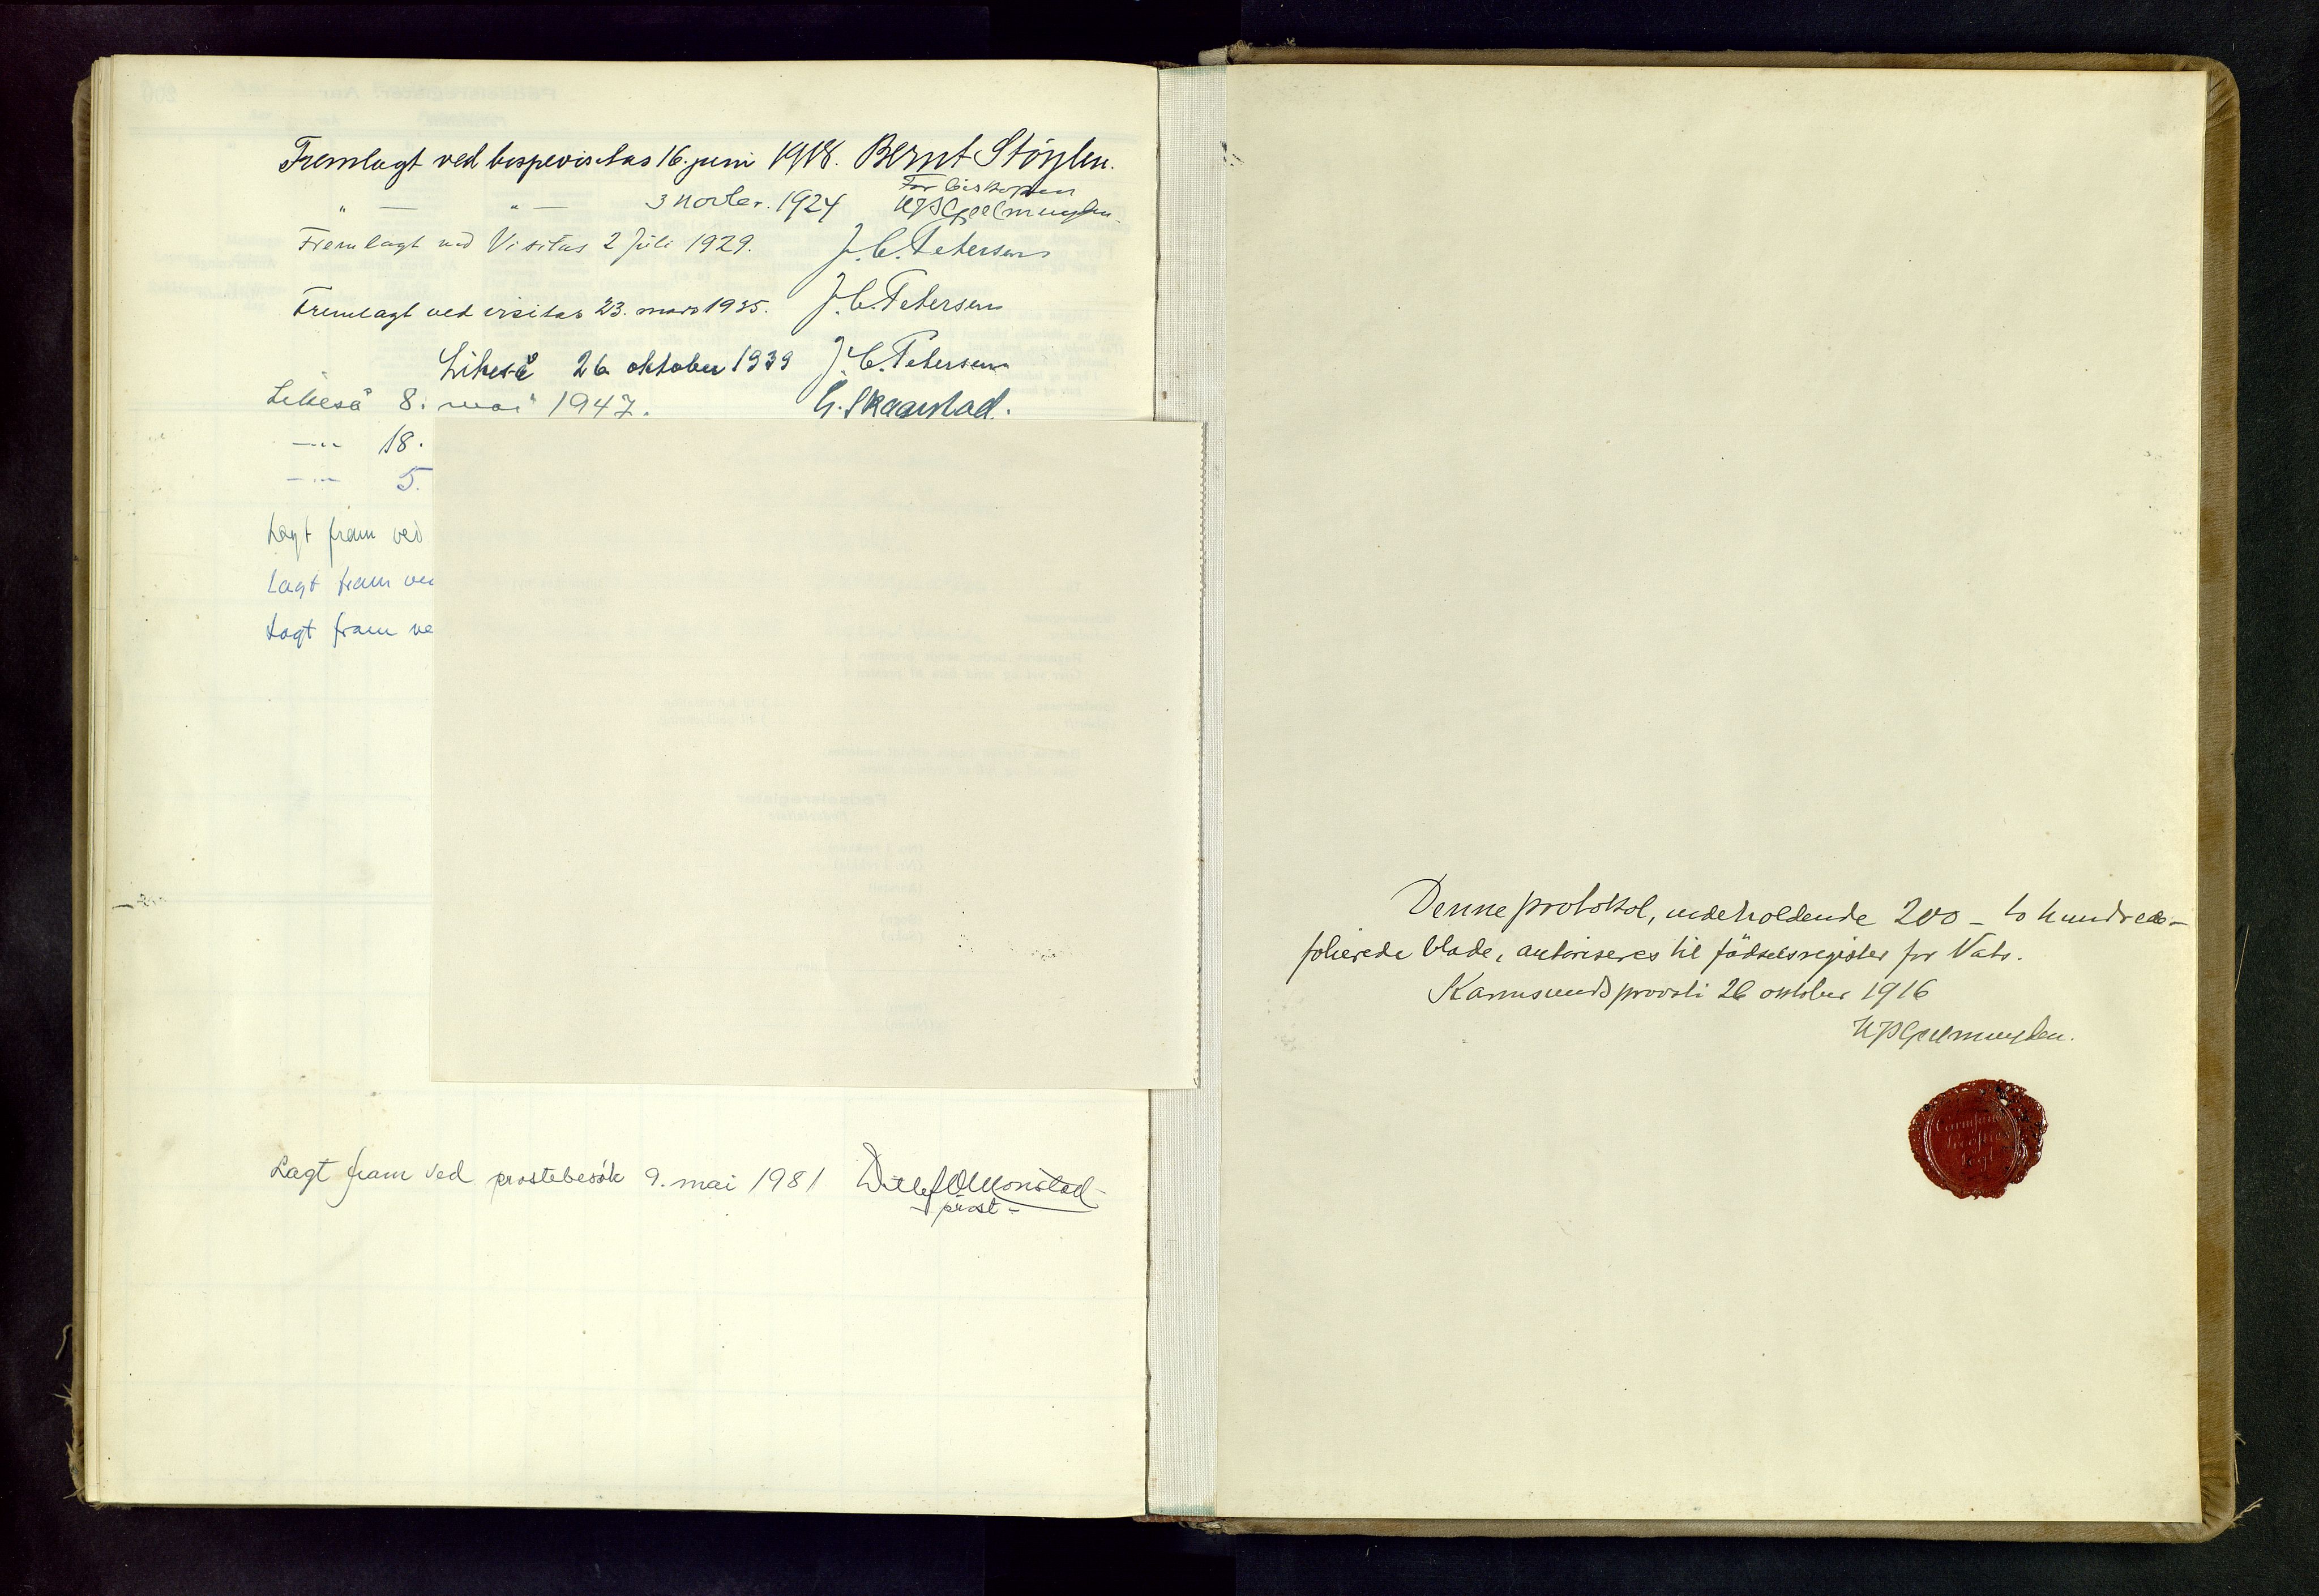 Fremlagt ved bispevisitas 16. juni 1918. Bernt Støylen.
" — " — 3 novbr. 1924 For biskopen
Fremlagt ved Visitas 2 Juli 1929. J. C. Petersen
Fremlagt ved visitas 23. mars 1935. J. C. Petersen
Likeså 26 oktober 1939 J. C. Petersen
Likeså 8. mai 1947. G. Skagestad.
—"— 18.
—"— 5.
Lagt fram ved
Lagt fram ve
Lagt fram ve
Lagt fram ved prostebesøk 9. mai 1981
prost-
Denne protokol, indeholdende 200 – to hundrede –
folierede blade, autoriseres til fødselsregister for Vats.
Karmsunds provsti 26 oktober 1916